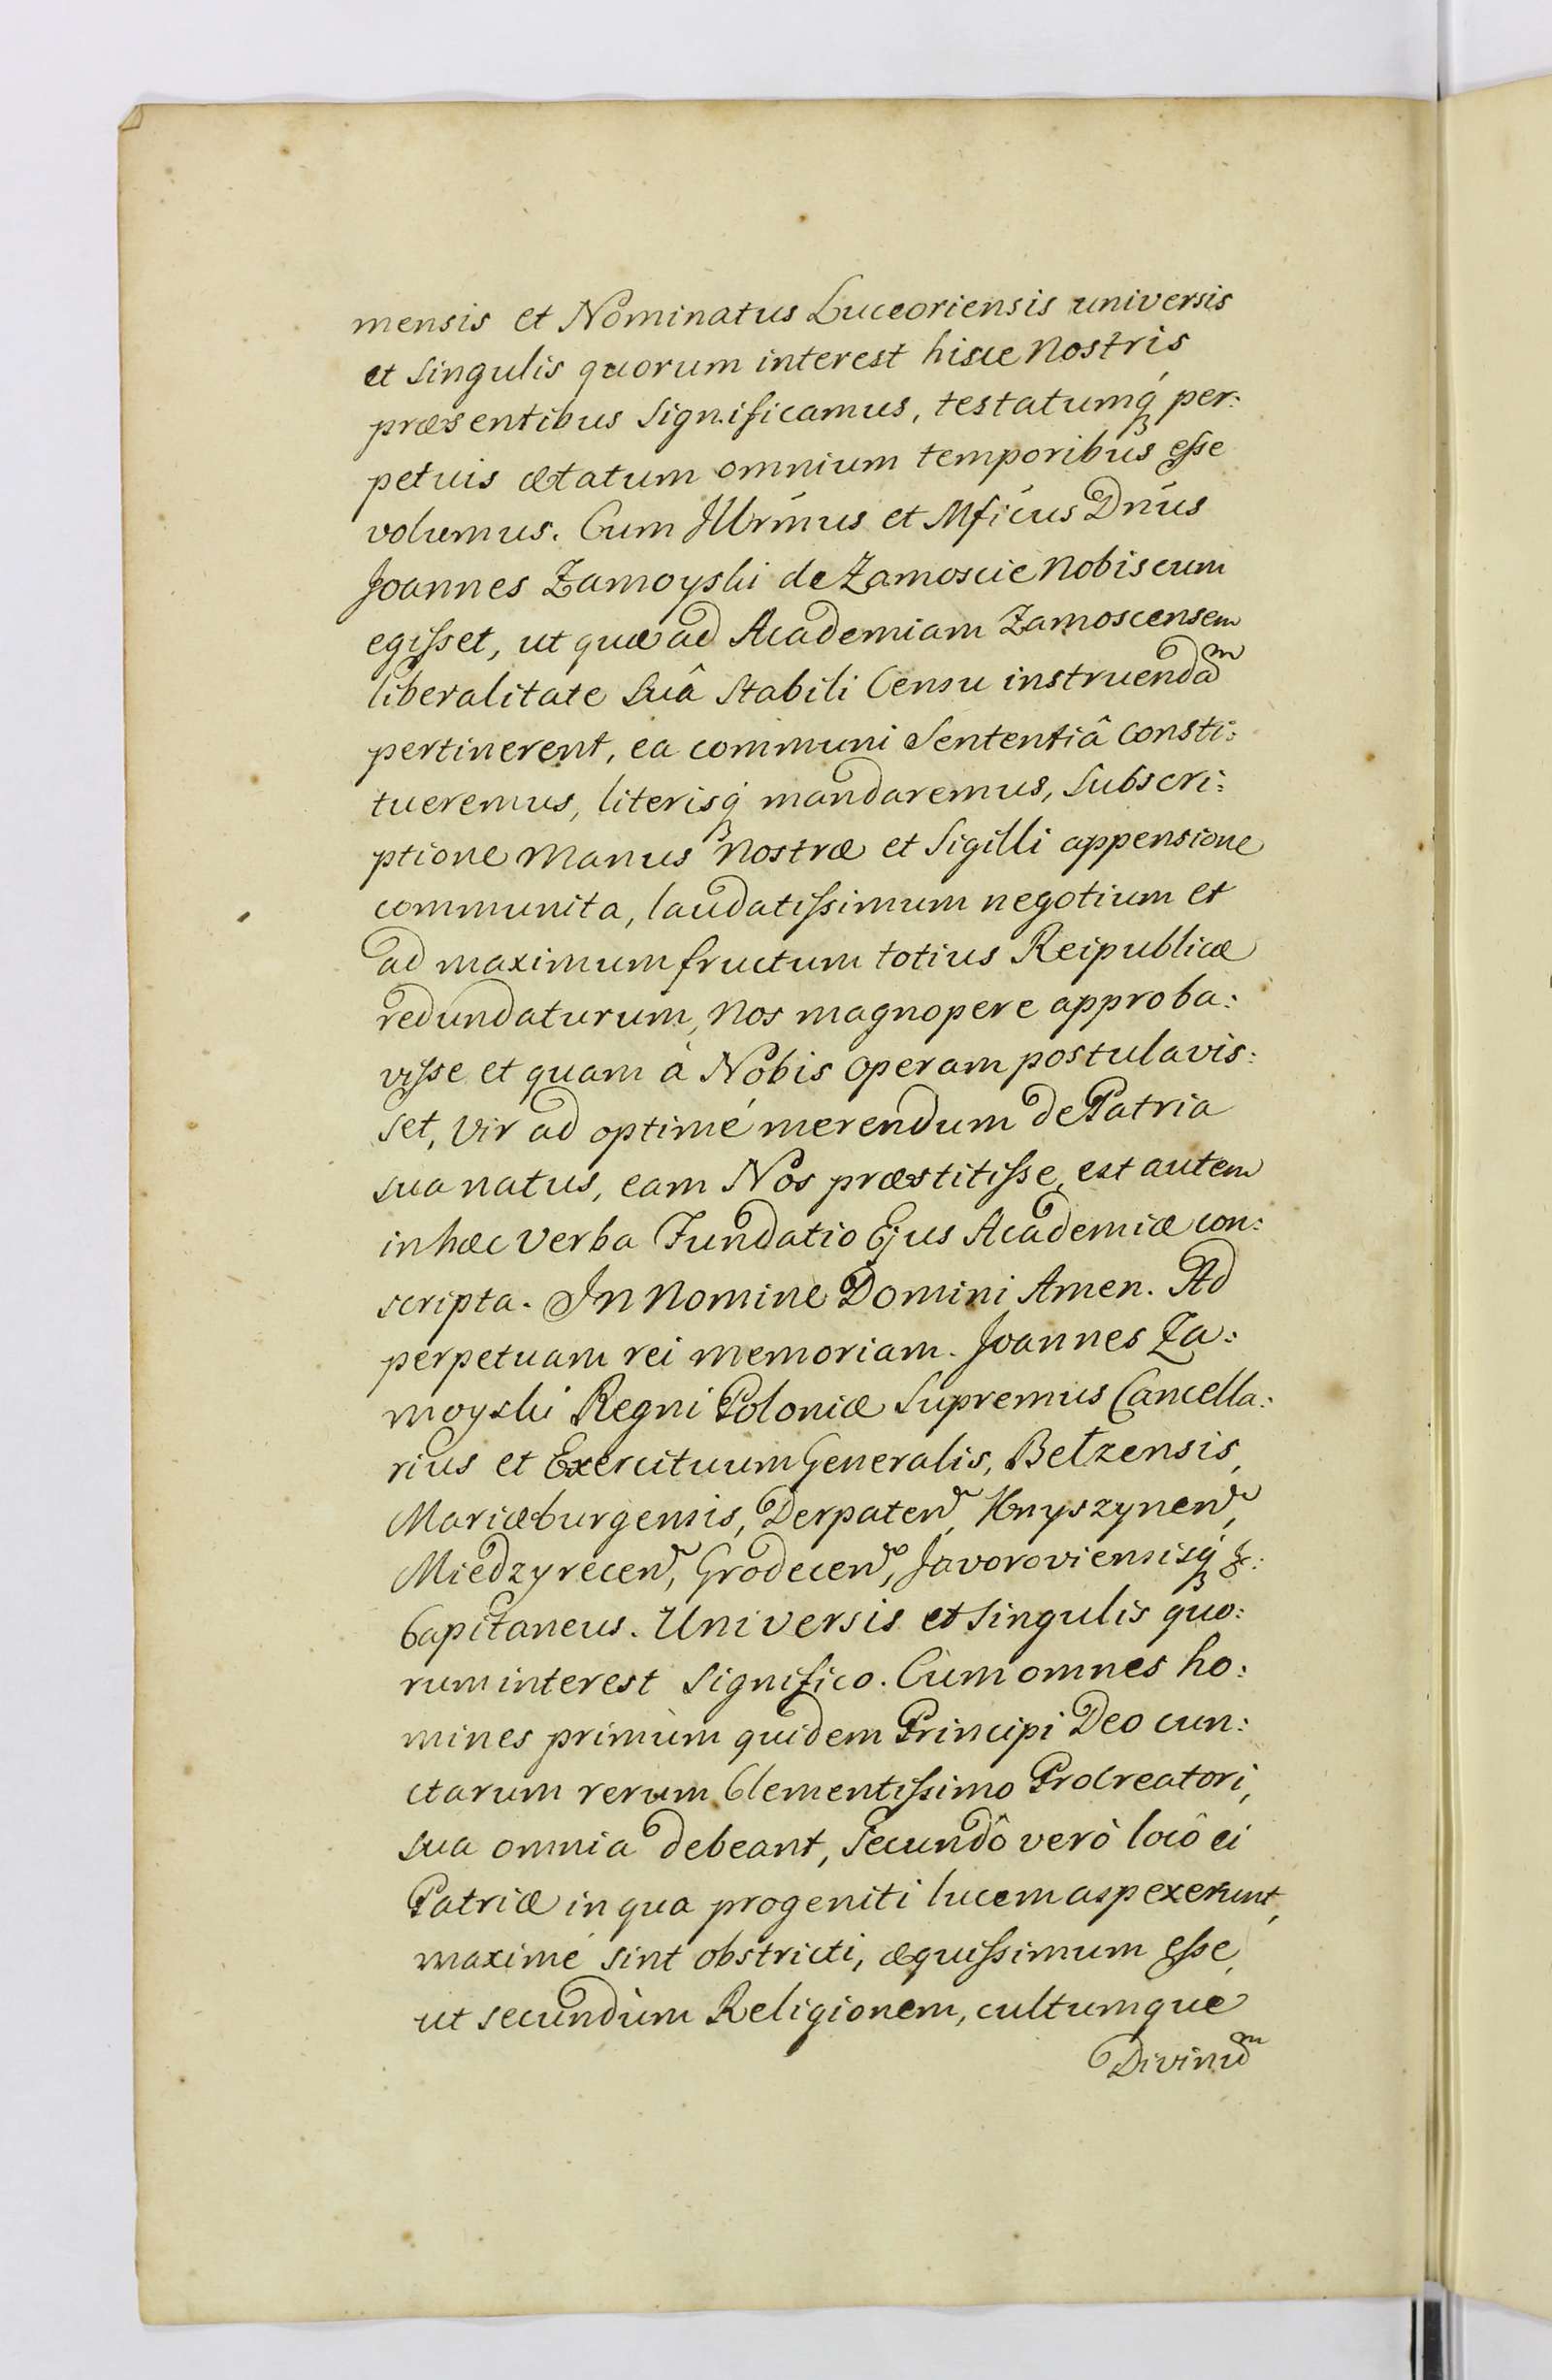 mensis et Nominatus Luceoriensis universis
et singulis quorum interest hisce Nostris
præsentibus significamus, testatumq́ꝫ per:
petuis ætatum omnium temporibus eſse
volumus. Cum Jllrm̃us et Mficus Dñus
Joannes Zamoyski de Zamoscie Nobiscum
egiſset, ut quæ ad Academiam Zamoscensem
liberalitate suâ stabili Censu instruendaᵐ
pertinerent, ea communi sententiâ consti:
tueremus, literisq́ꝫ mandaremus, subscri:
ptione Manus Nostræ et Sigilli appensione
communita, laudatiſsimum negotium et
ad maximum fructum totius Reipublicæ
redundaturum, Nos magnopere approba:
viſse et quam à Nobis operam postulavis:
set, Vir ad optimé merendum de Patria
sua natus, eam Nos præstitiſse, est autem
in hæc verba Fundatio Ejus Academiæ con:
scripta. In Nomine Domini Amen. Ad
perpetuam rei memoriam. Joannes Za:
moyski Regni Poloniæ Supremus Cancella:
rius et Exercituum Generalis, Belzensis,
Mariæburgensis, Derpaten̄, Knyszynen̄,
Miedzyrecen̄, Grodecen̄, Javoroviensisq́ꝫ &:
Capitaneus. Universis et singulis quo:
rum interest significo. Cùm omnes ho:
mines primùm quidem Principi Deo cun:
ctarum rerum Clementiſsimo Procreatori,
sua omnia debeant, secundô verò locô ei
Patriæ in qua progeniti lucem aspexerunt,
maximé sint obstricti, æquiſsimum eſse,
ut secundùm Religionem, cultumque
Divinuᵐ